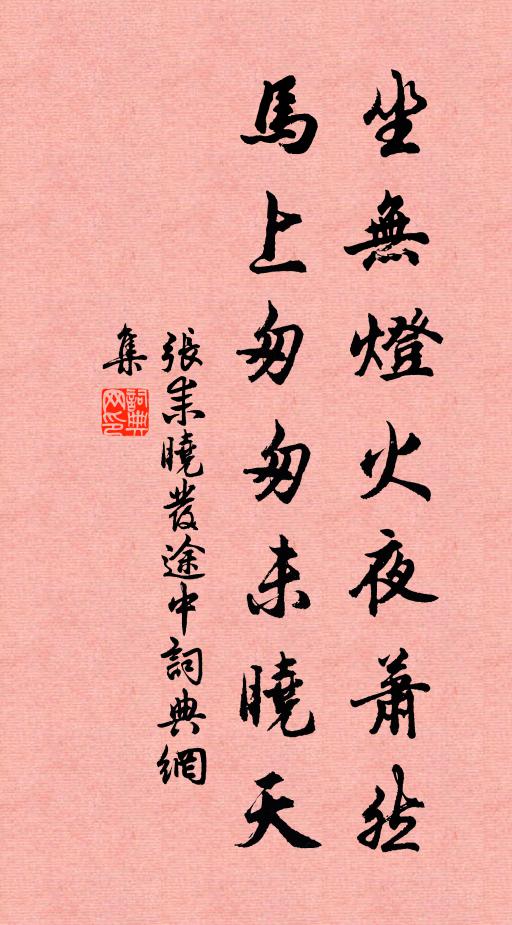 坐無燈火夜蕭然
馬上匆匆未曉天
張耒曉發途中詞典網
集
詞典
网印